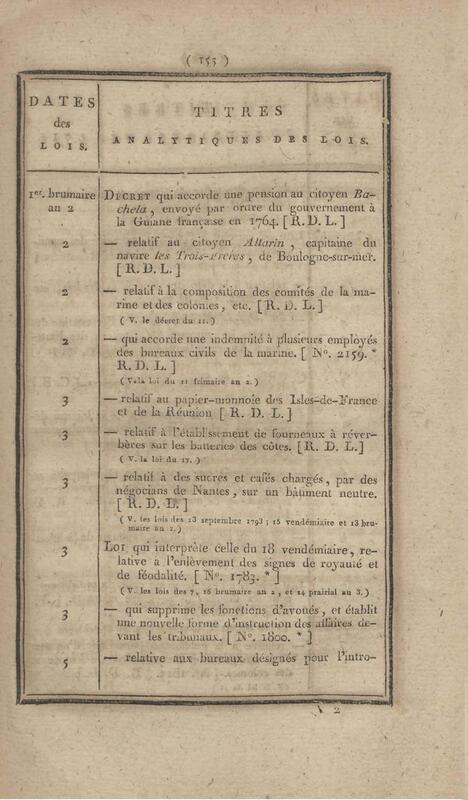 ( 155 )
DATES
des
LOIS.
TITRES
ANALYTIQUES DES LOIS.
1er. brumaire
an 2
DÉCRET qui accorde une pension au citoyen Ba-
chela, envoyé par ordre du gouvernement à
la Guiane française en 1764. [ R. D. L. ]
2
— relatif au citoyen Allarin, capitaine du
navire les Trois-Frères, de Boulogne-sur-mer.
[ R. D. L. ]
2
— relatif à la composition des comités de la ma-
rine et des colonies, etc. [ R. D. L. ]
( V. le décret du 11. )
2
— qui accorde une indemnité à plusieurs employés
des bureaux civils de la marine. [ No. 2159. *
R. D. L. ]
( V. la loi du 11 frimaire an 2. )
3
— relatif au papier-monnoie des Isles-de-France
et de la Réunion [ R. D. L. ]
3
— relatif à l'établissement de fourneaux à réver-
bères sur les batteries des côtes. [ R. D. L. ]
( V. la loi du 17. )
3
— relatif à des sucres et cafés chargés, par des
négocians de Nantes, sur un bâtiment neutre.
[ R. D. L. ]
( V. les lois des 23 septembre 1793 ; 15 vendémiaire et 13 bru-
maire an 2. )
3
LOI qui interprète celle du 18 vendémiaire, re-
lative à l'enlèvement des signes de royauté et
de féodalité. [ No. 1783. * ]
( V. les lois des 7, 16 brumaire an 2, et 14 prairial an 3. )
3
— qui supprime les fonctions d'avoués, et établit
une nouvelle forme d'instruction des affaires de-
vant les tribunaux. [ No. 1800. * ]
5
— relative aux bureaux désignés pour l'intro-
V 2